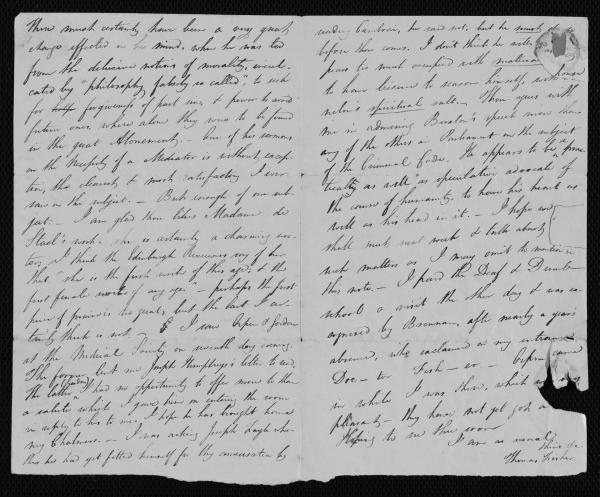 There must certainly have been a very great
change effected in his mind, when he was led
from the delusive notions of morality, incul-
cated by "philosophy falsely so called", to seek
for forgiveness of past sins, & power to avoid
future ones, where alone they were to be found
in the great Atonement. - One of his sermons
on the Necessity of a Mediator is without excep-
tion, the clearest & most satisfactory I ever
saw on the subject. - But enough of one sub-
ject. - I am glad thou likes Madame de
Stael's work. she is certainly a charming wri-
ter, I think the Edinburgh Reviewers say of her
that "she is the first writer of this age, & the
first female of any age" - perhaps the first
piece of praise is too great, but the last I cer-
tainly think is not. - I saw & Jordan
at the Medical Society on seventh day evening.
The former, lent me Joseph Humphrey's letter to read,
the latter I had no opportunity to offer more to than
a salute which I gave him on entering the room
in reply to his to me. I hope he has brought home
my Chalmers. - I was asking Joseph
this he had yet fitted himself for thy by
reading Cambrai, he said not, but he must do so
before thou comes. I don't think he will
he's most occupied with material
to have leisure to season himself with
nelon's spiritual salt. - Thou agrees with
me in admiring speech more than
any of the others in Parliament on the subject
of the Criminal Code. He appears to be a "prac-
tically as well" as speculative advocate of
the cause of humanity, to have his heart as
well as his head in it. - I hope we
shall meet next week & talk about
such matters as I may omit to mention in
this note. - I paid the Deaf & Dumb
school a visit the other day & was re-
cognised by Brennan, after nearly a year's
absence, who exclaimed at my entrance
Doc - tor Fish - er - came
in while I was there, which was very
pleasant - they have not yet got a
to me thee soon
I am as usual
thine &c
Thomas Fisher